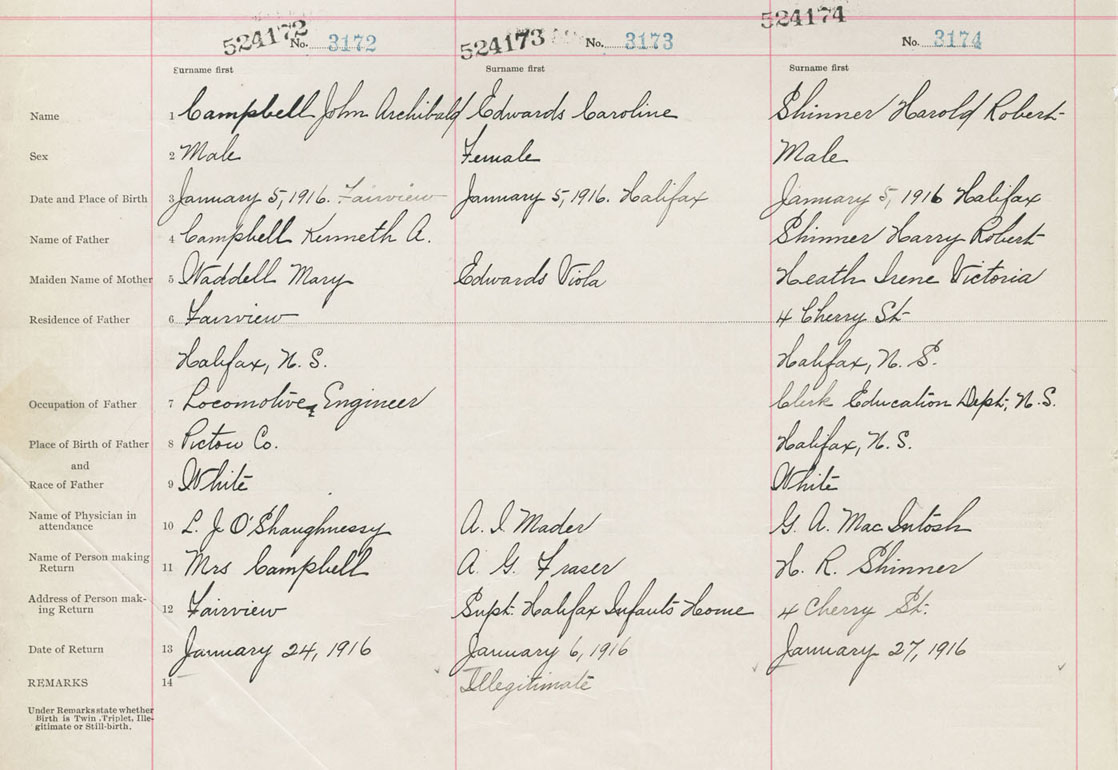 524172 No. 3172 524173 No. 3173 524174 No. 3174
Surname first Surname first Surname first
Name 1 Campbell John Archibald Edwards Caroline Shinner Harold Robert
Sex 2 Male Female Male
Date and Place of Birth 3 January 5, 1916. Fairview January 5, 1916. Halifax January 5, 1916 Halifax
Name of Father 4 Campbell Kenneth A. Shinner Harry Robert
Maiden Name of Mother 5 Waddell Mary Edwards Viola Heath Irene Victoria
Residence of Father 6 Fairview 4 Cherry St
Halifax, N. S. Halifax, N. S.
Occupation of Father 7 Locomotive Engineer Clerk Education Dept, N.S.
Place of Birth of Father 8 Pictou Co. Halifax, N.S.
and
Race of Father 9 White White
Name of Physician in
attendance 10 L. J. O'Shaughnessy A. I. Mader G. A. MacIntosh
Name of Person making
Return 11 Mrs Campbell A. G. Fraser H. R. Shinner
Address of Person mak-
ing Return 12 Fairview Supt. Halifax Infants Home 4 Cherry St.
Date of Return 13 January 24, 1916 January 6, 1916 January 27, 1916
REMARKS 14 Illegitimate
Under Remarks state whether
Birth is Twin, Triplet, Ille-
gitimate or Still-birth.